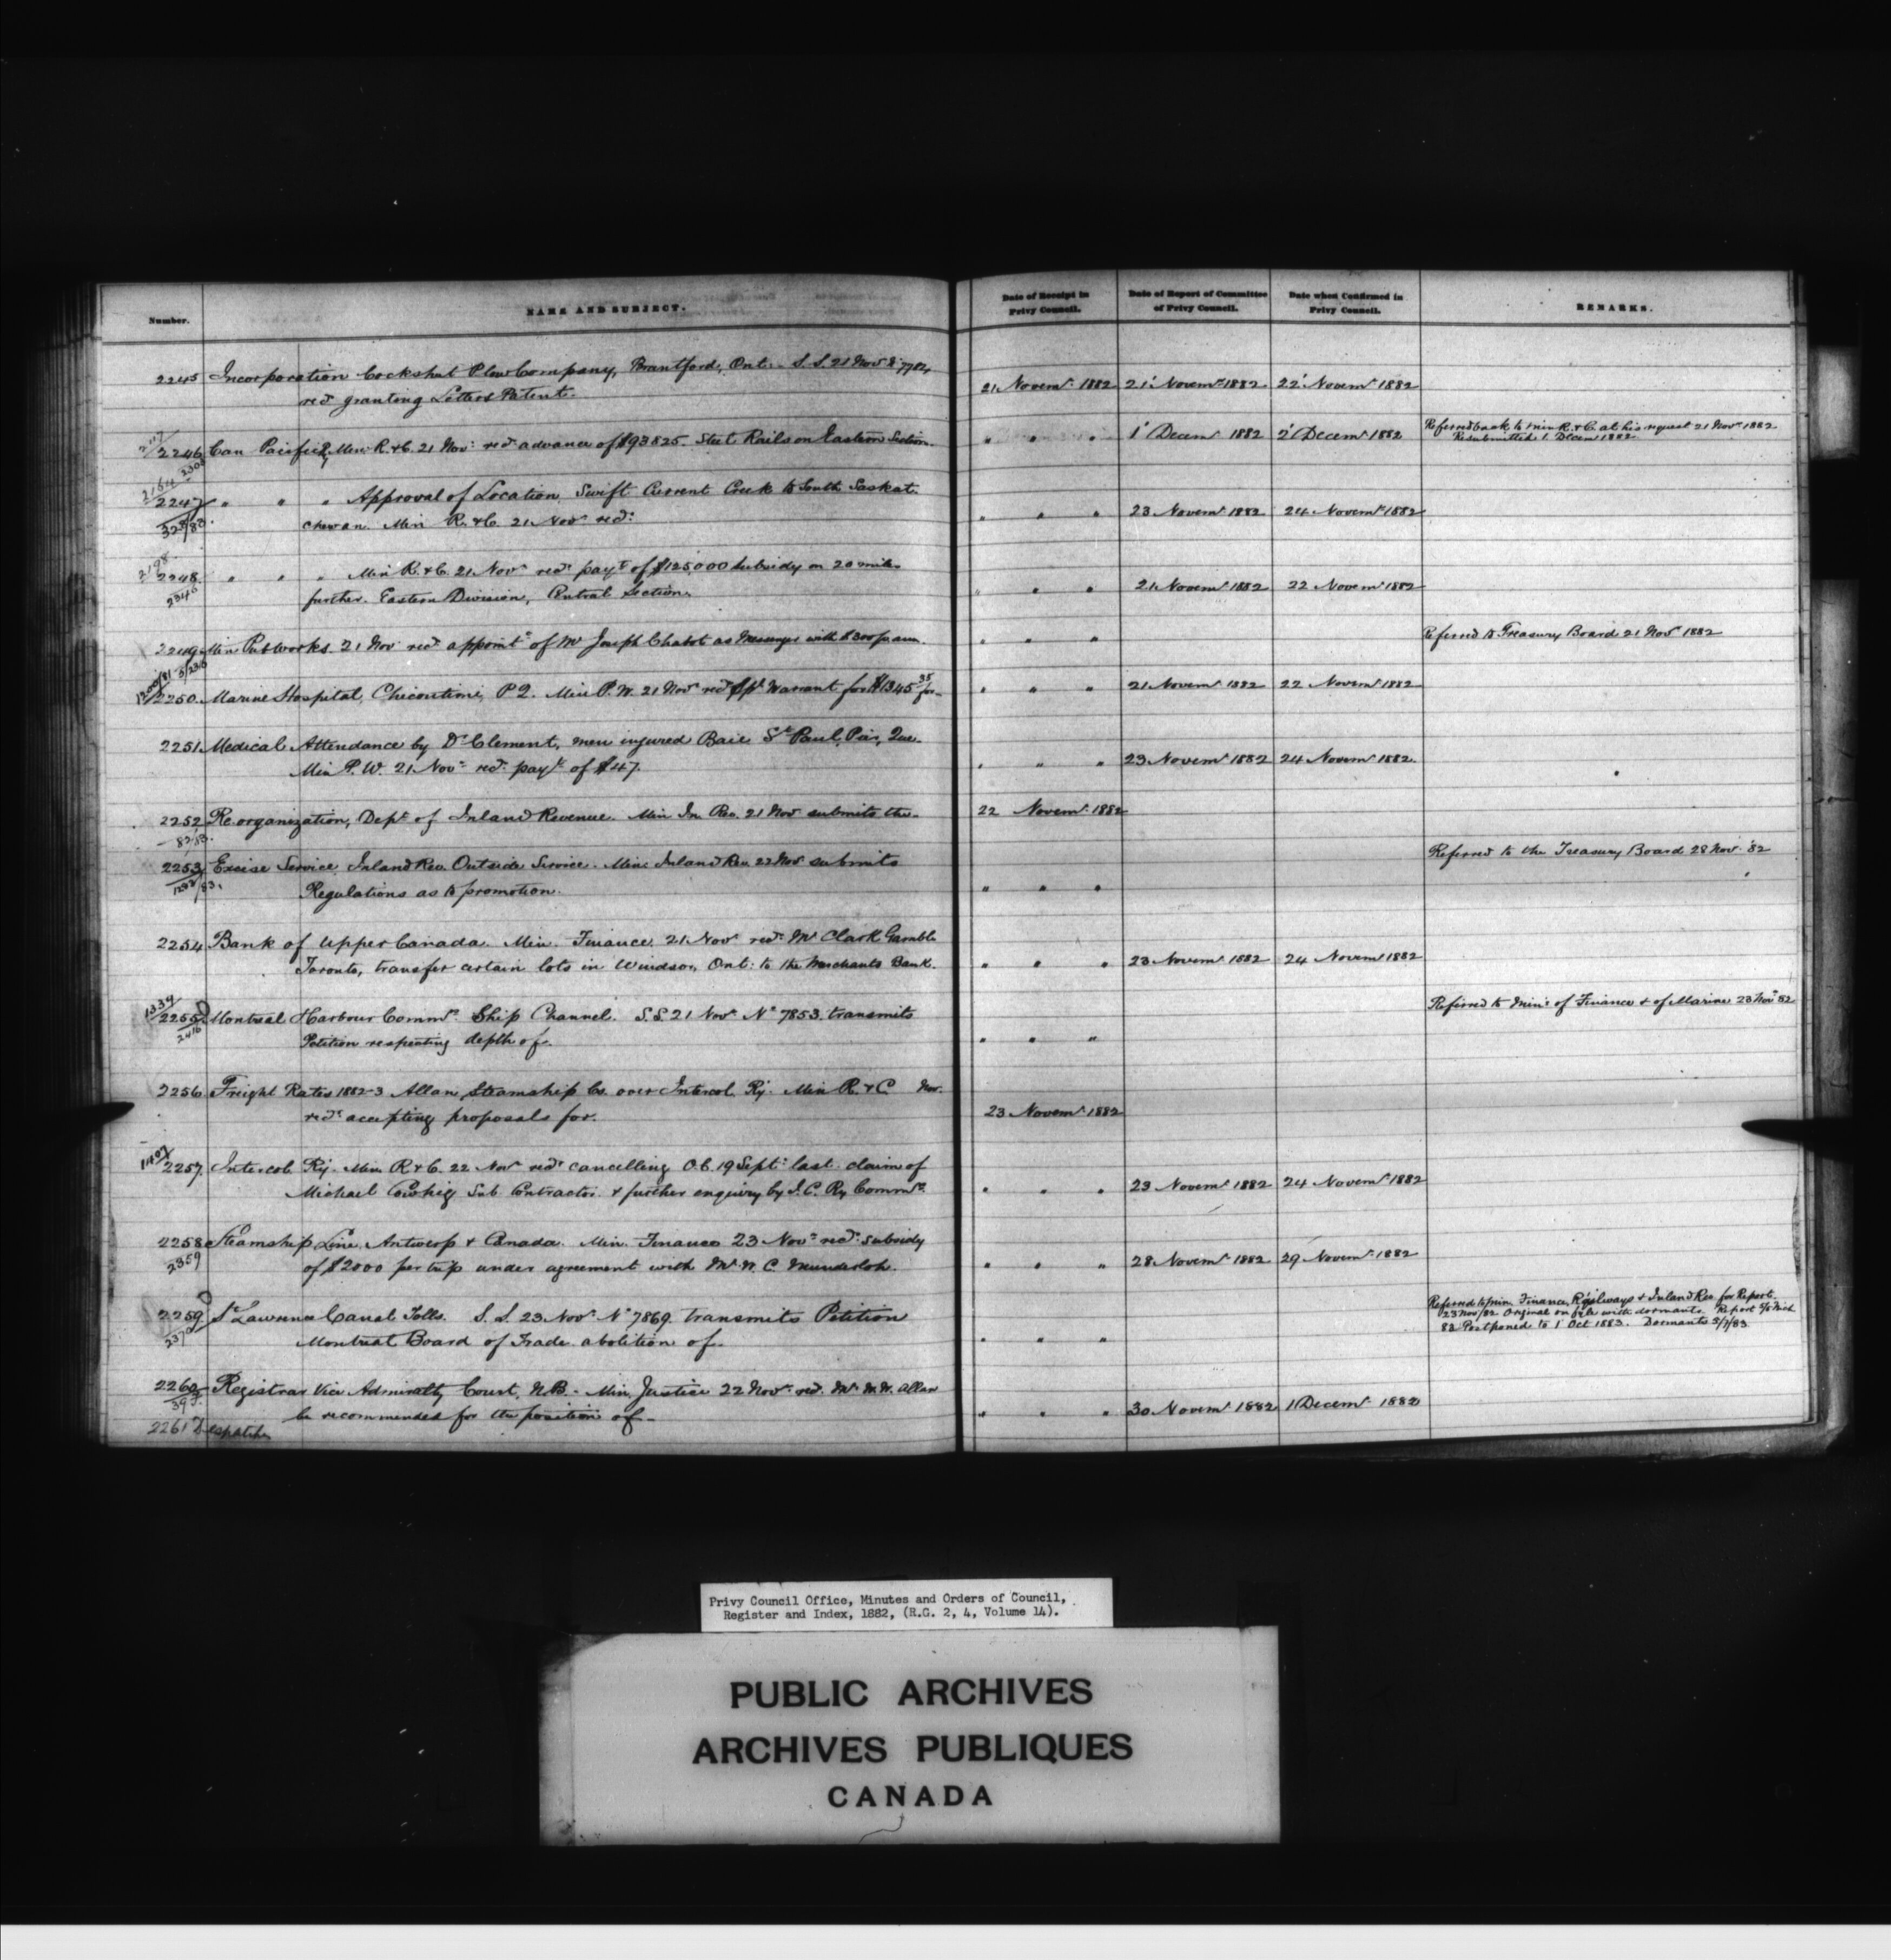 Number.
NAME AND SUBJECT.
Date of Receipt in Privy Council.
Date of Report of Committee of Privy Council.
Date when Confirmed in Privy Council.
REMARKS.
2245 Incorporation Cockshut Plow Company, Brantford, Ont. - S.S. 21 Novr No 7782, 21 Novemr 1882 21 Novemr 1882 22 Novemr 1882
recr granting Letters Patent.
2246 Can Pacific Ry Min: R. & C. 21 Nov: recr advance of $93825. Steel Rails on Eastern Section. " " " 1 Decemr 1882 2 Decemr 1882 Referred back to Min R. & C. at his request 21 Novr 1882
Resubmitted 1 Decem 1882
2164
2247 " " " Approval of Location Swift Current Creek to South Saskat-
328/83. chewan. Min R. & C. 21 Novr recr " " " 23 Novemr 1882 24 Novemr 1882
2198
2248 " " " Min R. & C. 21 Novr recr payt of $125,000 subsidy on 20 miles
further. Eastern Division, Central Section. " " " 21 Novemr 1882 22 Novemr 1882
2249 Min Pub Works. 21 Nov recr appointt of Mr Joseph Chabot as Messenger with $300 pr ann. " " " Referred to Treasury Board 21 Novr 1882
2250 Marine Hospital, Chicoutimi, P.Q. Min P.W. 21 Novr recr Spl Warrant for $1345 35 for- " " " 21 Novemr 1882 22 Novemr 1882
2251 Medical Attendance by Dr Clement, men injured Baie St Paul, Pier, Que.
Min P.W. 21 Novr recr payt of $47. " " " 23 Novemr 1882 24 Novemr 1882.
2252 Re organization, Dept of Inland Revenue. Min In. Rev. 21 Novr submits the- 22 Novemr 1882
82/83.
2253 Excise Service, Inland Rev. Outside Service. Min: Inland Rev. 22 Novr submits Referred to the Treasury Board 28 Nov. 82
Regulations as to promotion. " " "
2254 Bank of Upper Canada. Min. Finance. 21 Novr recr Mr Clark Gamble
Toronto, transfer certain lots in Windsor, Ont: to the Merchants Bank. " " " 23 Novemr 1882 24 Novemr 1882
1334
2255 Montreal Harbour Commrs Ship Channel. S.S. 21 Novr No 7853. transmits Referred to Min: of Finance & of Marine 23 Novr 82
Petition respecting depth of. " " "
2256 Freight Rates 1882-3 Allan Steamship Co. over Intercol. Ry. Min R. & C. Nov.
recr accepting proposals for. 23 Novemr 1882
2257 Intercol. Ry. Min R & C. 22 Novr recr cancelling O.C. 19 Sept: last claim of
Michael Cowhig Sub Contractor. & further enquiry by I.C. Ry Commrs. " " " 23 Novemr 1882 24 Novemr 1882
2258 Steamship Line, Antwerp & Canada. Min. Finance 23 Novr recr subsidy
2359 of $2000 per trip under agreement with Mr W. C. Munderloh. " " " 28 Novemr 1882 29 Novemr 1882
2259 St Lawrence Canal Tolls. S.S. 23 Novr No 7869. transmits Petition
Montreal Board of Trade abolition of. " " "
Referred to Min Finance, Railways & Inland Rev. for Report.
23 Nov/82 Original on file with dormants. Report
83 Postponed to 1 Oct 1883. Dormants 5/7/83
2260 Registrar Vice Admiralty Court, N.B. - Min. Justice 22 Novr recr Mr W.W. Allen
be recommended for the position of- " " " 30 Novemr 1882 1 Decemr 1882
2261 Despatches
Privy Council Office, Minutes and Orders of Council,
Register and Index, 1882, (R.G. 2, 4, Volume 14).
PUBLIC ARCHIVES
ARCHIVES PUBLIQUES
CANADA